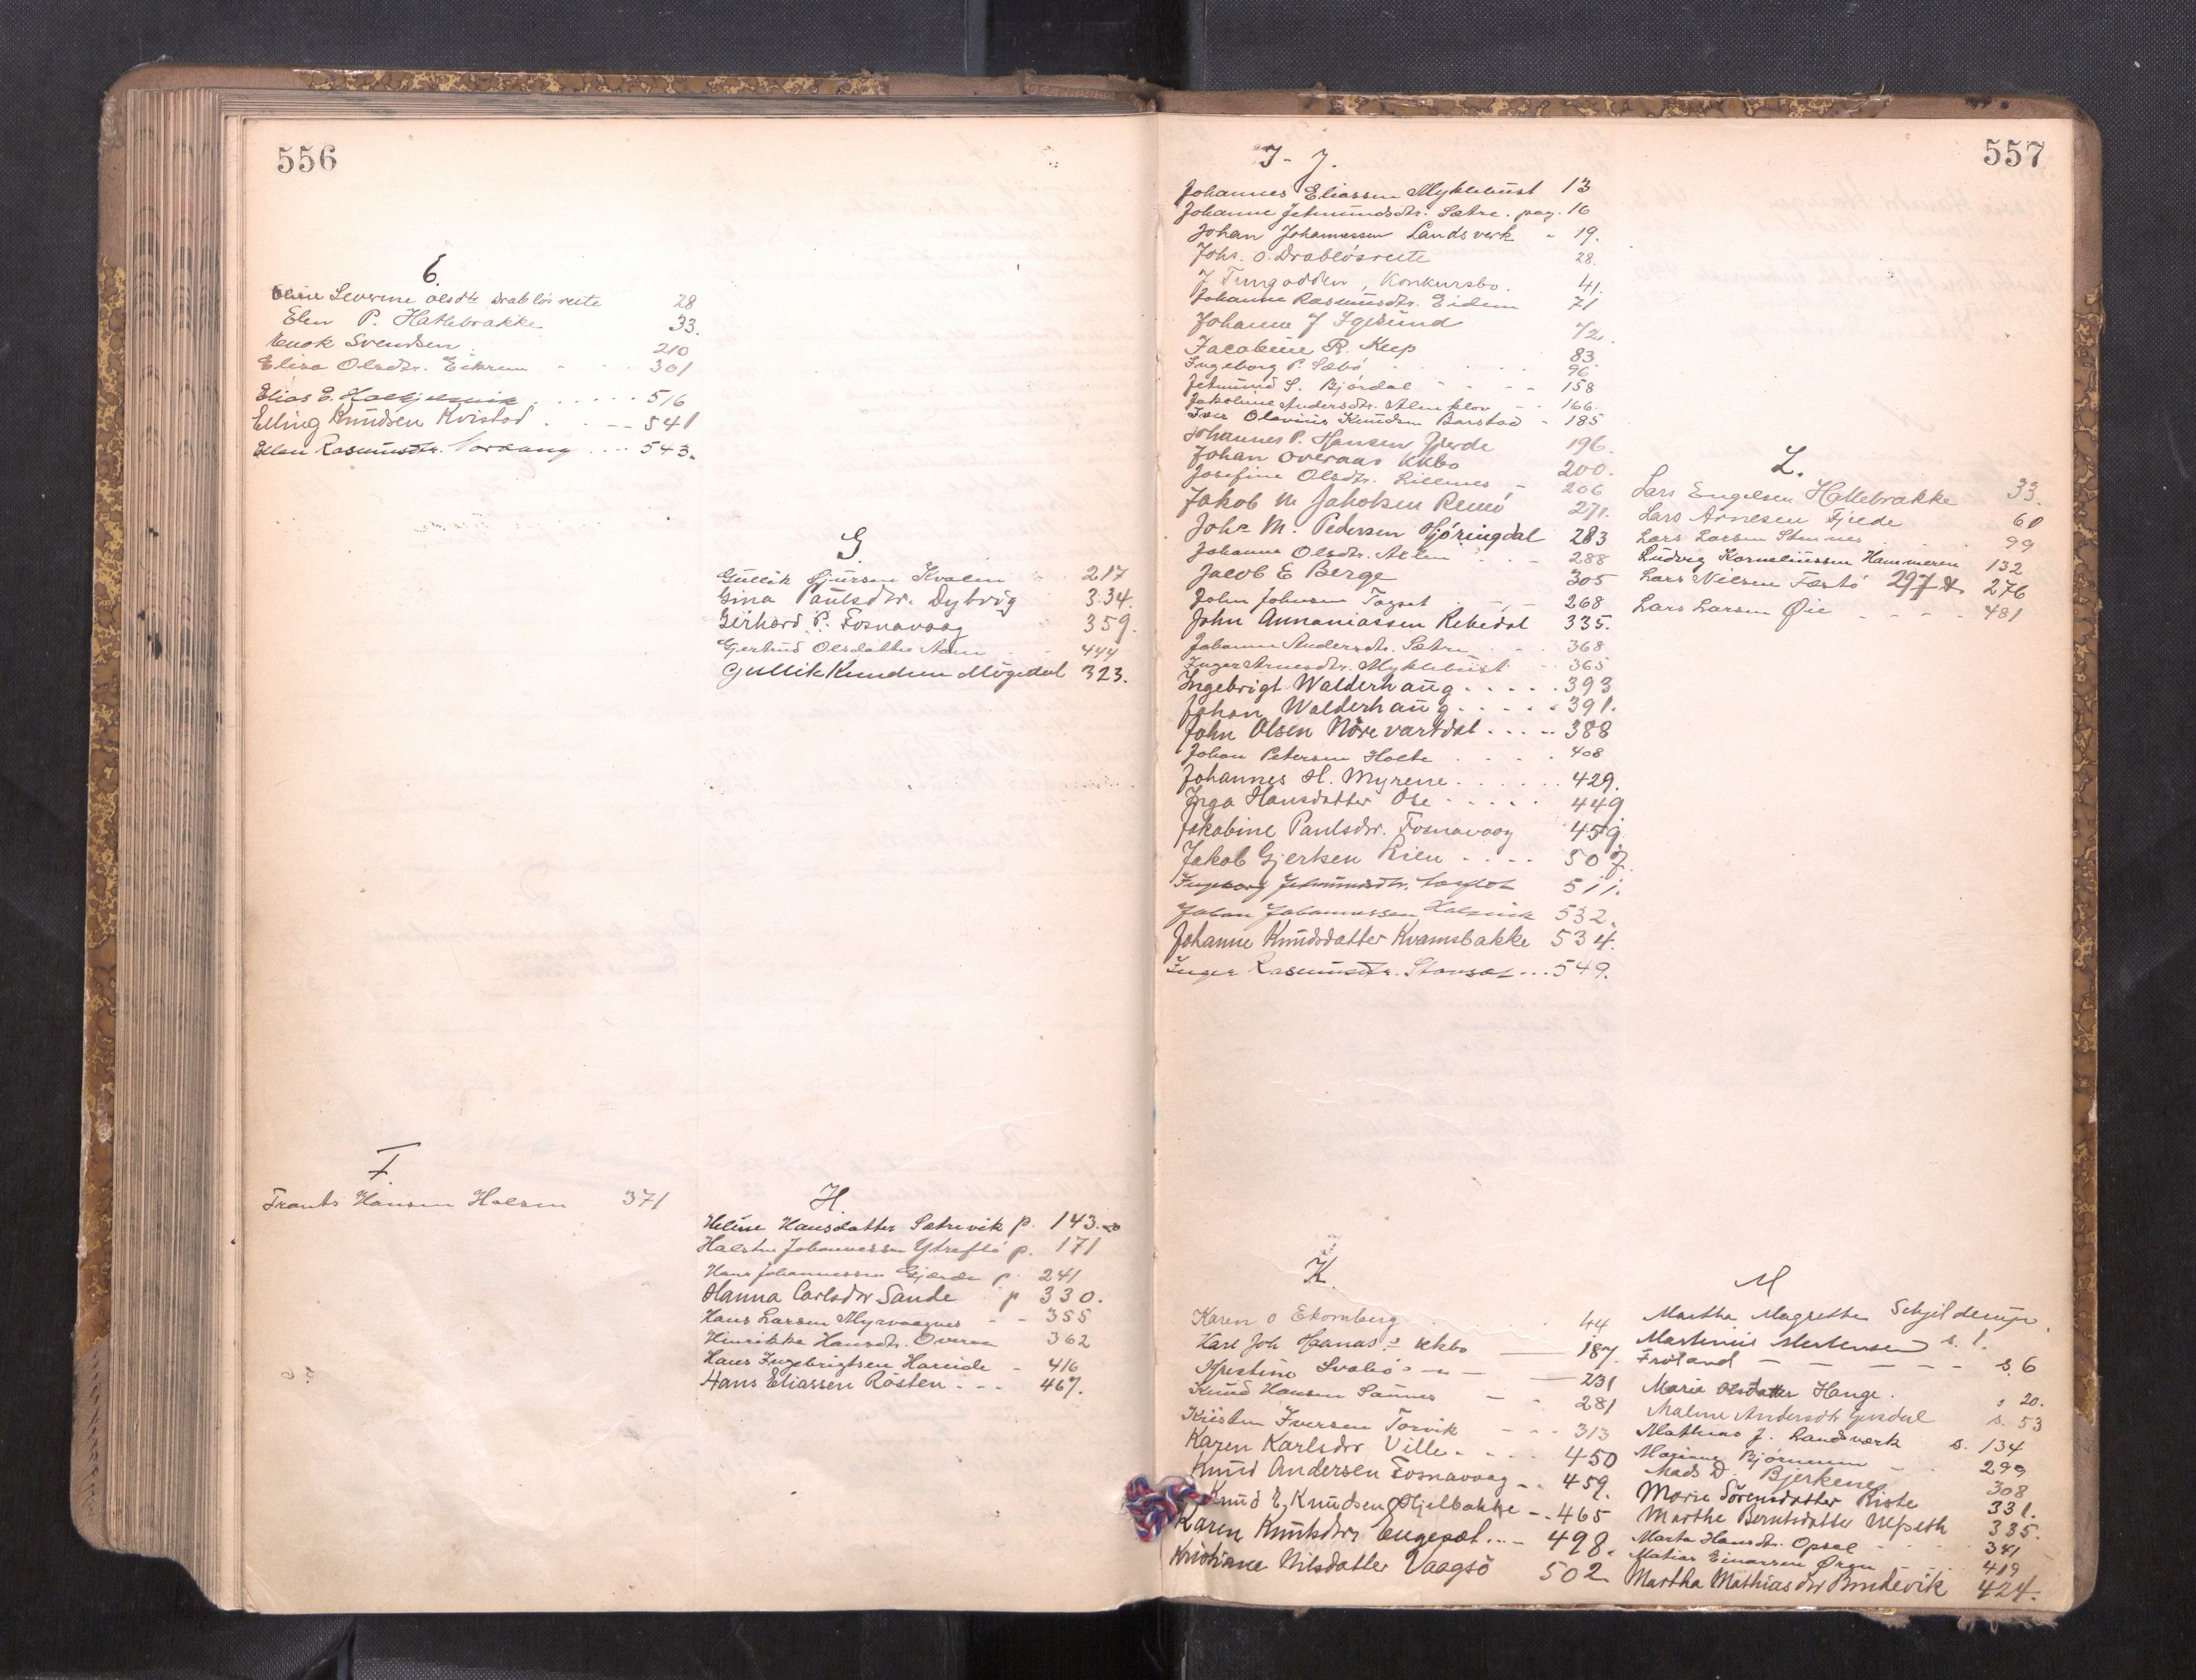 556
E.
Severine Olsdtr Drabløsreite 28
Elen P. Hatlebrække 33.
Enok Svendsen 210
Elisa Olsdtr. Eikrem - - 301
Elias E. . . . . . . 516
Elling Knudsen Kvistad . . - - 541
Ellen Rasmusdtr. Nordang .... 543.
G.
Gullik Sjursen Kvalen 217
Gina Paulsdtr. Dybvig 334.
Gerhard P. Fosnavaag 359.
Gjertrud Olsdatter 444
Gullik Knudsen Møgedal 323.
F.
Frants Hansen Halsen 371
H.
Heline Hansdatter Sætrevik p. 143.
Halsten Johannessen Ytreflø p. 171
Hans Johannessen Gjærde p. 241
Hanna Carlsdtr Sande p 330.
Hans Larsen Myrvaagnes - - 355
Henrikke Hansdtr. Overaa 362
Hans Ingebrigtsen Hareide - 416
Hans Eliassen Røsten . - - 467.
557
I - J.
Johannes Eliassen Myklebust 13
Johanne Jetmundsdtr. Sætre. pag. 16
Johan Johannessen Landsverk " 19.
Johs. O. Drabløsreite 28.
J. Tungodden, Konkursbo. 41.
Johanne Rasmusdtr. Eidem 71
Johanne J Igesund 72.
Jacobine R. Keep 83
Ingeborg P. Sæbø 96
Jetmund S. Bjørdal - - - - 158
Jakobine Andersdtr. Almklov - - 166.
Iver Olavius Knudsen Barstad - 185
Johannes P. Hansen Gjerde 196.
Johan Overaas KKbo 200.
Josefine Olsdtr. Lillenes - 206
Jakob M Jakobsen Remø 271.
Johs M. Pedersen Hjøringdal 283
Johanne Olsdtr. Aklen - - - 288
Jacob E Berge 305
John Johnsen Tagset - - - 268
John Annaniassen Rebedal 335.
Johanne Andersdtr. Sætre - - 368
Inger Arnesdtr. Myklebust - 365
Ingebrigt Walderhaug . . . . . 393
Johan Walderhaug . . . . . 391.
John Olsen Nørevartdal . . . - - 388
Johan Petersen Holte . . . . 408
Johannes H. Myrene . . . . . . 429.
Inga Hansdatter Ose - - - - - 449
Jakobine Paulsdtr. Fosnavaag 459.
Jakob Gjertsen Lien - . . . 507.
Ingeborg Jetmundsdtr. 511.
Johan Johannessen Halsvik 532.
Johanne Knudsdatter Kvamsbakke 534.
Inger Rasmusdtr. Stavset ... 549.
L.
Lars Engelsen Hatlebrække 33.
Lars Arnesen Fjelde 60
Lars Larsen Steinnes 99
Ludvig Korneliussen Hammeren 132
Lars Nilsen Festø 297 & 276
Lars Larsen Øie - - - - 481
K.
Karen O Ekornberg . . . 44
Karl Joh Haanæs's kkbo —— 187.
Kristine —— 231
Knud Hansen Sannes - - 281
Kristen Iversen Torvik - - - 313
Karen Karlsdtr Ville - - - - 450
Knud Andersen Fosnavaag - - 459.
Knud E. Knudsen Hjelbakke - . 465
Karen Knutsdtr Engeset ... - 498.
Kristiane Nilsdatter Vaagsø 502
M
Martha Magrethe Schjelderup s. 1.
Martinus Mortensen
Frøland - - - - - s. 6
Marie Olsdatter Hauge. s 20.
Malene Andersdtr Gjusdal s. 53
Mathias J. Landsverk s. 134
Bjørnenn 299
Mads D. Bjerkenes 308
Marie Sørensdatter Riste 331.
Marthe Berntsdatter Ulfseth 335.
Marta Hansdtr. Opsal - - 341
Matias Einarsen Ørsn 419
Martha Mathiasdtr Bondevik 424.